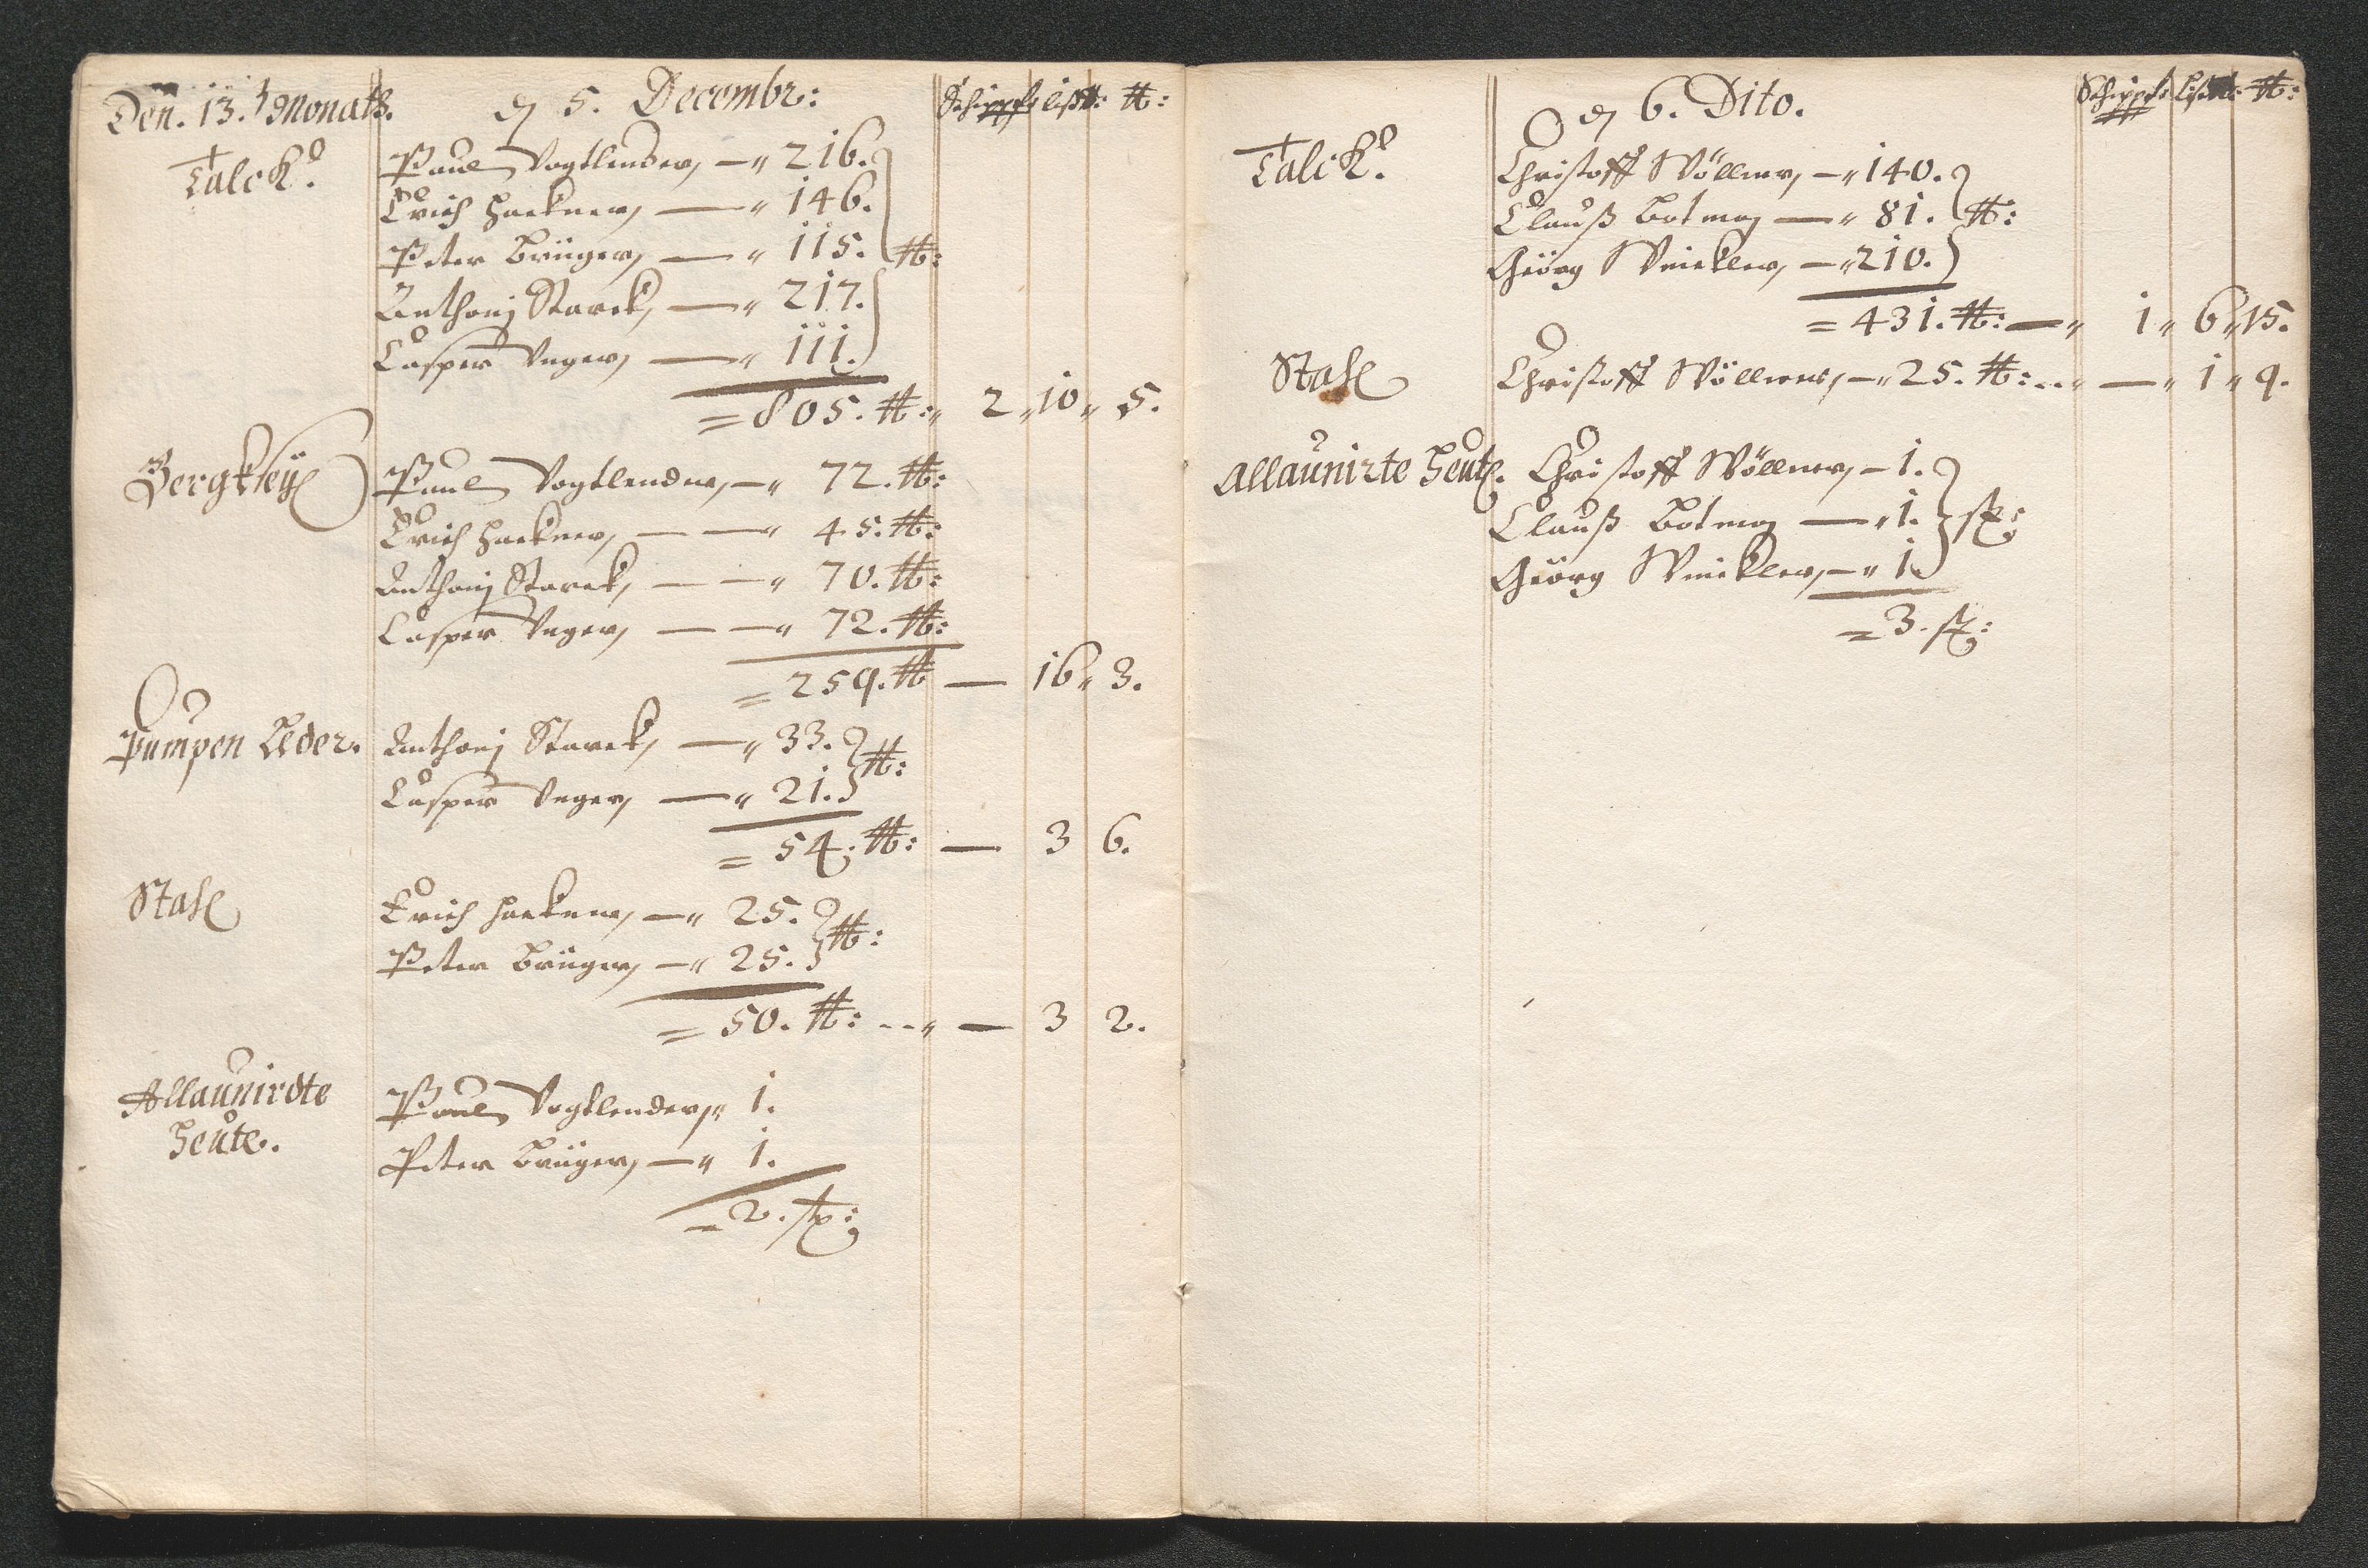 Den. 13. Monatß.
d 5. Decembr:
Schippf lißt: ℔:
Talck.
Paul Vogtlender, —„ 216.
Erich Hackner, —„ 146.
Peter Krüger, —„ 115. ℔:
Anthonj Starck, —„ 217.
Casper Unger, —„ 111.
= 805. ℔:„ 2„ 10„ 5.
Paul Vogtlender, —„ 72. ℔:
Erich Hackner, — —„ 45. ℔:
Anthonj Starck, — —„ 70. ℔:
Casper Unger, — —„ 72. ℔:
= 259. ℔ — 16„ 3.
Pumpen Leder. Anthonj Starck, —„ 33.
℔:
Casper Unger, —„ 21.
= 54. ℔: — 3 6.
Stahl
Erich Hackner, —„ 25.
℔:
Peter Krüger, —„ 25.
= 50. ℔: --„ — 3 2.
Allaunirdte
Heute.
Paul Vogtlender,„ 1.
Peter Krüger, —„ 1.
= 2. st:
d 6. Dito.
Schippf lißt: ℔:
Talck.
Christoff Wöllner, —„ 140.
Clauß Botman —„ 81. ℔:
Geörg Winckler, —„ 210.
= 431. ℔: —„ 1„ 6„ 15.
Stahl
Christoff Wöllner, —„ 25. ℔: --„ —„ 1„ 9.
Allaunirte Heute. Christoff Wöllner, — 1.
Clauß Botman —„ 1. st:
Geörg Winckler, —„ 1.
= 3. st: